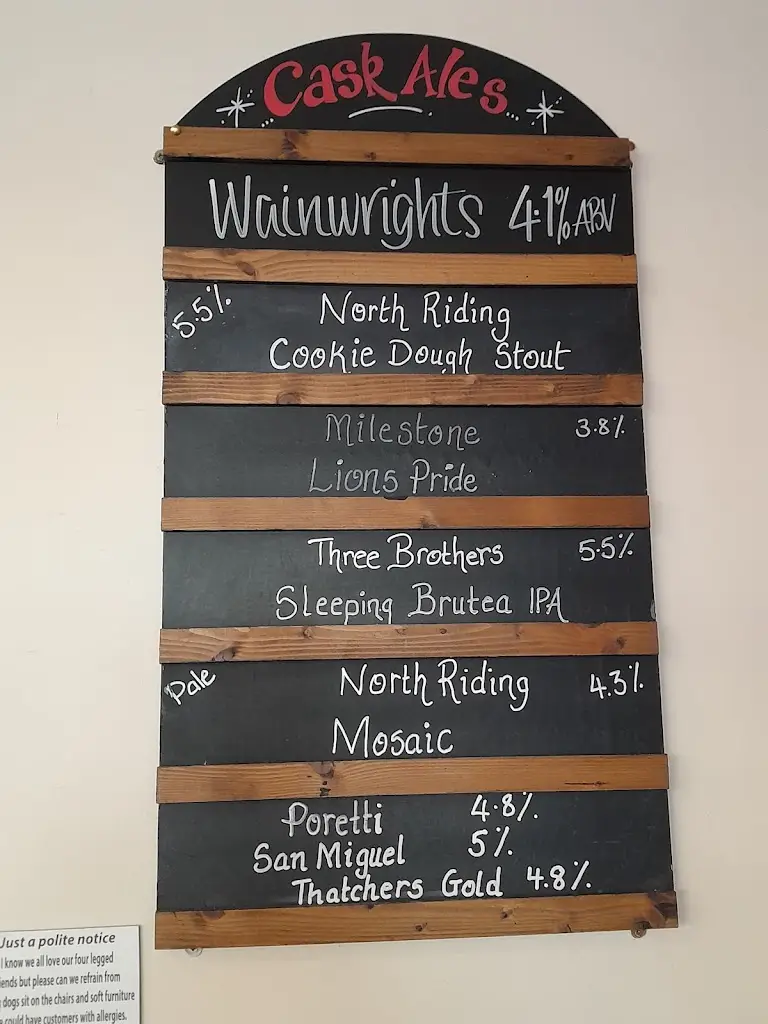 Cask Ales
Wainwrights 4.1% ABV
5.5% North Riding
Cookie Dough Stout
Milestone 3.8%
Lions Pride
Three Brothers 5.5%
Sleeping Brutea IPA
Pale North Riding 4.3%
Mosaic
Poretti 4.8%
San Miguel 5%
Thatchers Gold 4.8%
Just a polite notice
I know we all love our four legged
iends but please can we refrain from
dogs sit on the chairs and soft furniture
could have customers with allergies.